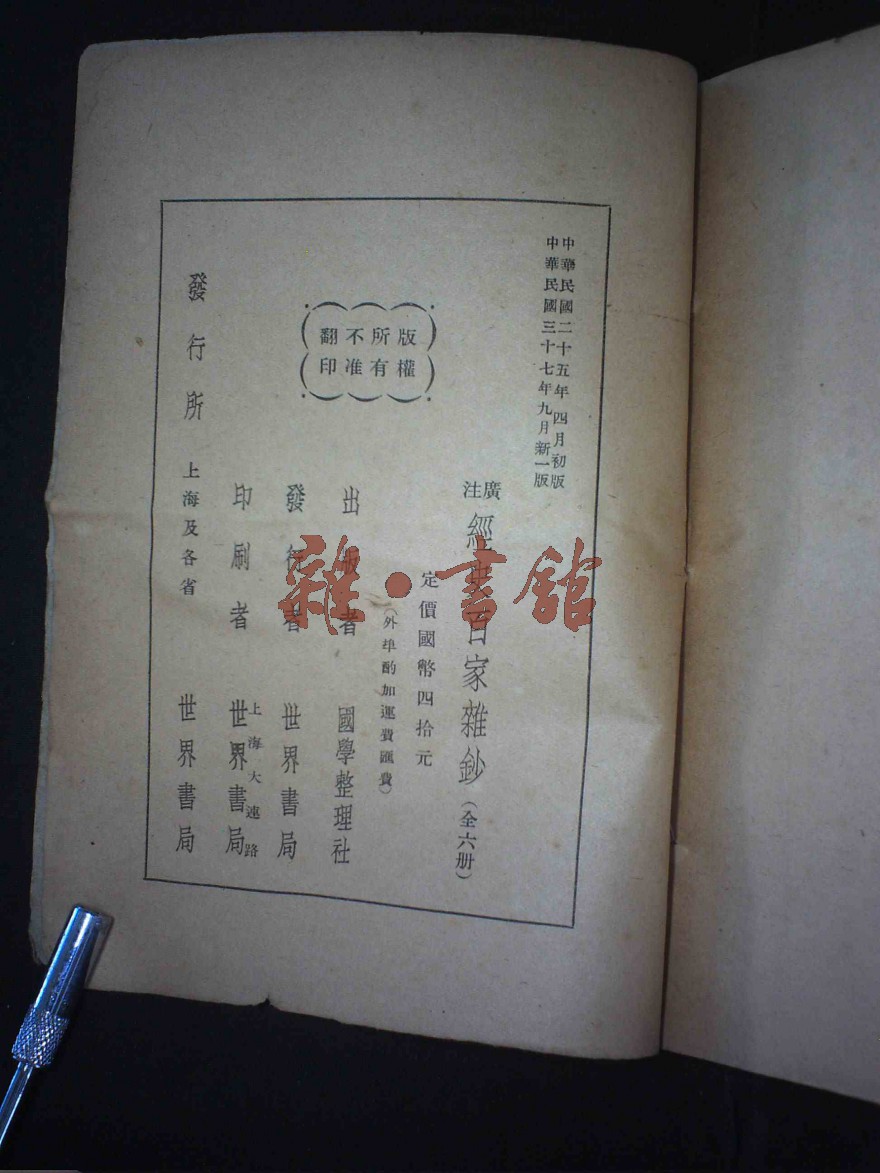 中華民國二十五年四月初版
中華民國三十七年九月新一版
廣注 經史百家雜鈔（全六册）
定價國幣四拾元
（外埠酌加運費匯費）
版權
所有
不准
翻印
出版者 國學整理社
發行者 世界書局
印刷者 上海大連路 世界書局
發行所 上海及各省 世界書局
雜·書館